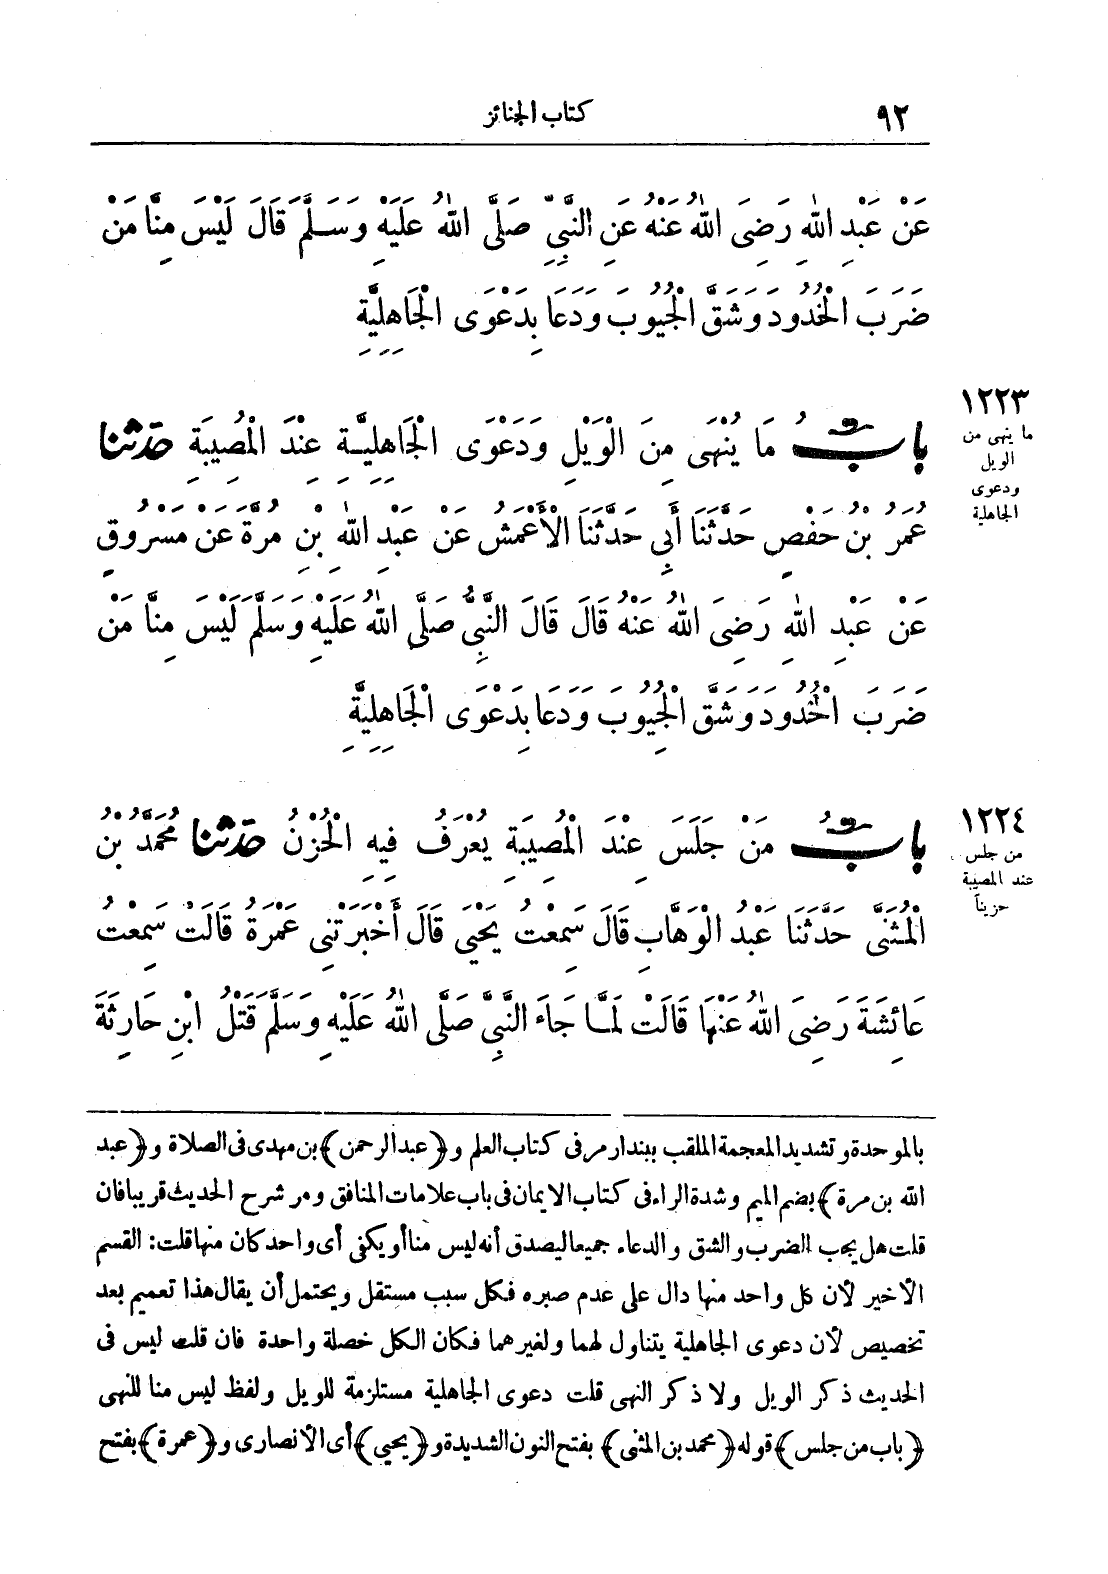 ٩٢
كتاب الجنائز
عَنْ عَبْدِ اللهِ رَضِىَ اللهُ عَنْهُ عَنِ النَّبِىِّ صَلَّى اللهُ عَلَيْهِ وَسَلَّمَ قَالَ لَيْسَ مِنَّا مَنْ
ضَرَبَ الْخُدُودَ وَشَقَّ الْجُيُوبَ وَدَعَا بِدَعْوَى الْجَاهِلِيَّةِ
١٢٢٣
ما ينهى من
الويل
ودعوى
الجاهلية
بابُ مَا يُنْهَى مِنَ الْوَيْلِ وَدَعْوَى الْجَاهِلِيَّةِ عِنْدَ الْمُصِيبَةِ حدثنا
عُمَرُ بْنُ حَفْصٍ حَدَّثَنَا أَبِي حَدَّثَنَا الْأَعْمَشُ عَنْ عَبْدِ اللهِ بْنِ مُرَّةَ عَنْ مَسْرُوقٍ
عَنْ عَبْدِ اللهِ رَضِىَ اللهُ عَنْهُ قَالَ قَالَ النَّبِىُّ صَلَّى اللهُ عَلَيْهِ وَسَلَّمَ لَيْسَ مِنَّا مَنْ
ضَرَبَ الْخُدُودَ وَشَقَّ الْجُيُوبَ وَدَعَا بِدَعْوَى الْجَاهِلِيَّةِ
١٢٢٤
من جلس
عند المصيبة
حزيناً
بابُ مَنْ جَلَسَ عِنْدَ الْمُصِيبَةِ يُعْرَفُ فِيهِ الْحُزْنُ حدثنا مُحَمَّدُ بْنُ
الْمُثَنَّى حَدَّثَنَا عَبْدُ الْوَهَّابِ قَالَ سَمِعْتُ يَحْيَى قَالَ أَخْبَرَتْنِى عَمْرَةُ قَالَتْ سَمِعْتُ
عَائِشَةَ رَضِىَ اللهُ عَنْهَا قَالَتْ لَمَّا جَاءَ النَّبِىَّ صَلَّى اللهُ عَلَيْهِ وَسَلَّمَ قَتْلُ ابْنِ حَارِثَةَ
بالموحدة وتشديد المعجمة الملقب ببندار مر فى كتاب العلم و﴿عبد الرحمن﴾ بن مهدى فى الصلاة و﴿عبد
الله بن مرة﴾ بضم الميم وشدة الراء فى كتاب الايمان فى باب علامات المنافق ومر شرح الحديث قريبا فان
قلت هل يجب الضرب والشق والدعاء جميعا ليصدق أنه ليس منا أو يكفى أى واحد كان منها قلت: القسم
الأخير لأن كل واحد منها دال على عدم صبره فكل سبب مستقل ويحتمل أن يقال هذا تعميم بعد
تخصيص لأن دعوى الجاهلية يتناول لهما ولغيرهما فكان الكل خصلة واحدة فان قلت ليس فى
الحديث ذكر الويل ولا ذكر النهى قلت دعوى الجاهلية مستلزمة للويل ولفظ ليس منا للنهى
﴿باب من جلس﴾ قوله ﴿محمد بن المثنى﴾ بفتح النون الشديدة و﴿يحيى﴾ أى الأنصارى و﴿عمرة﴾ بفتح